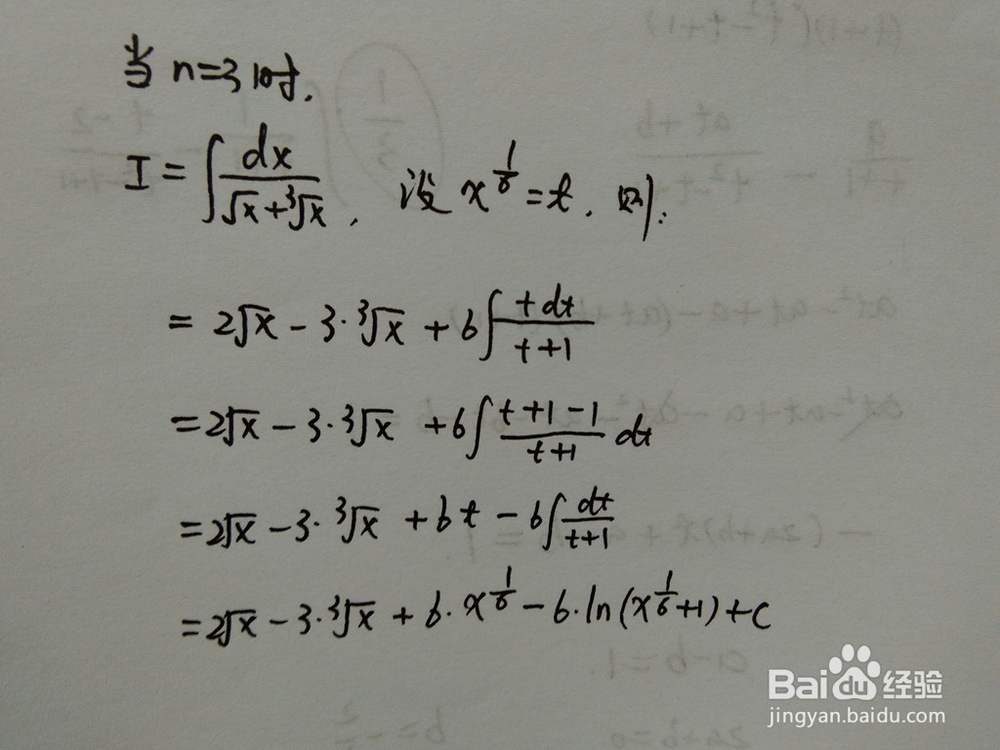 当 n=3 时.
I = ∫ dx/(√x+³√x) , 设 x^(1/6) = t. 则:
= 2√x - 3·³√x + 6∫ tdt/(t+1)
= 2√x - 3·³√x + 6∫ (t+1-1)/(t+1) dt
= 2√x - 3·³√x + 6t - 6∫ dt/(t+1)
= 2√x - 3·³√x + 6·x^(1/6) - 6·ln(x^(1/6)+1) + C
Baidu经验
jingyan.baidu.com